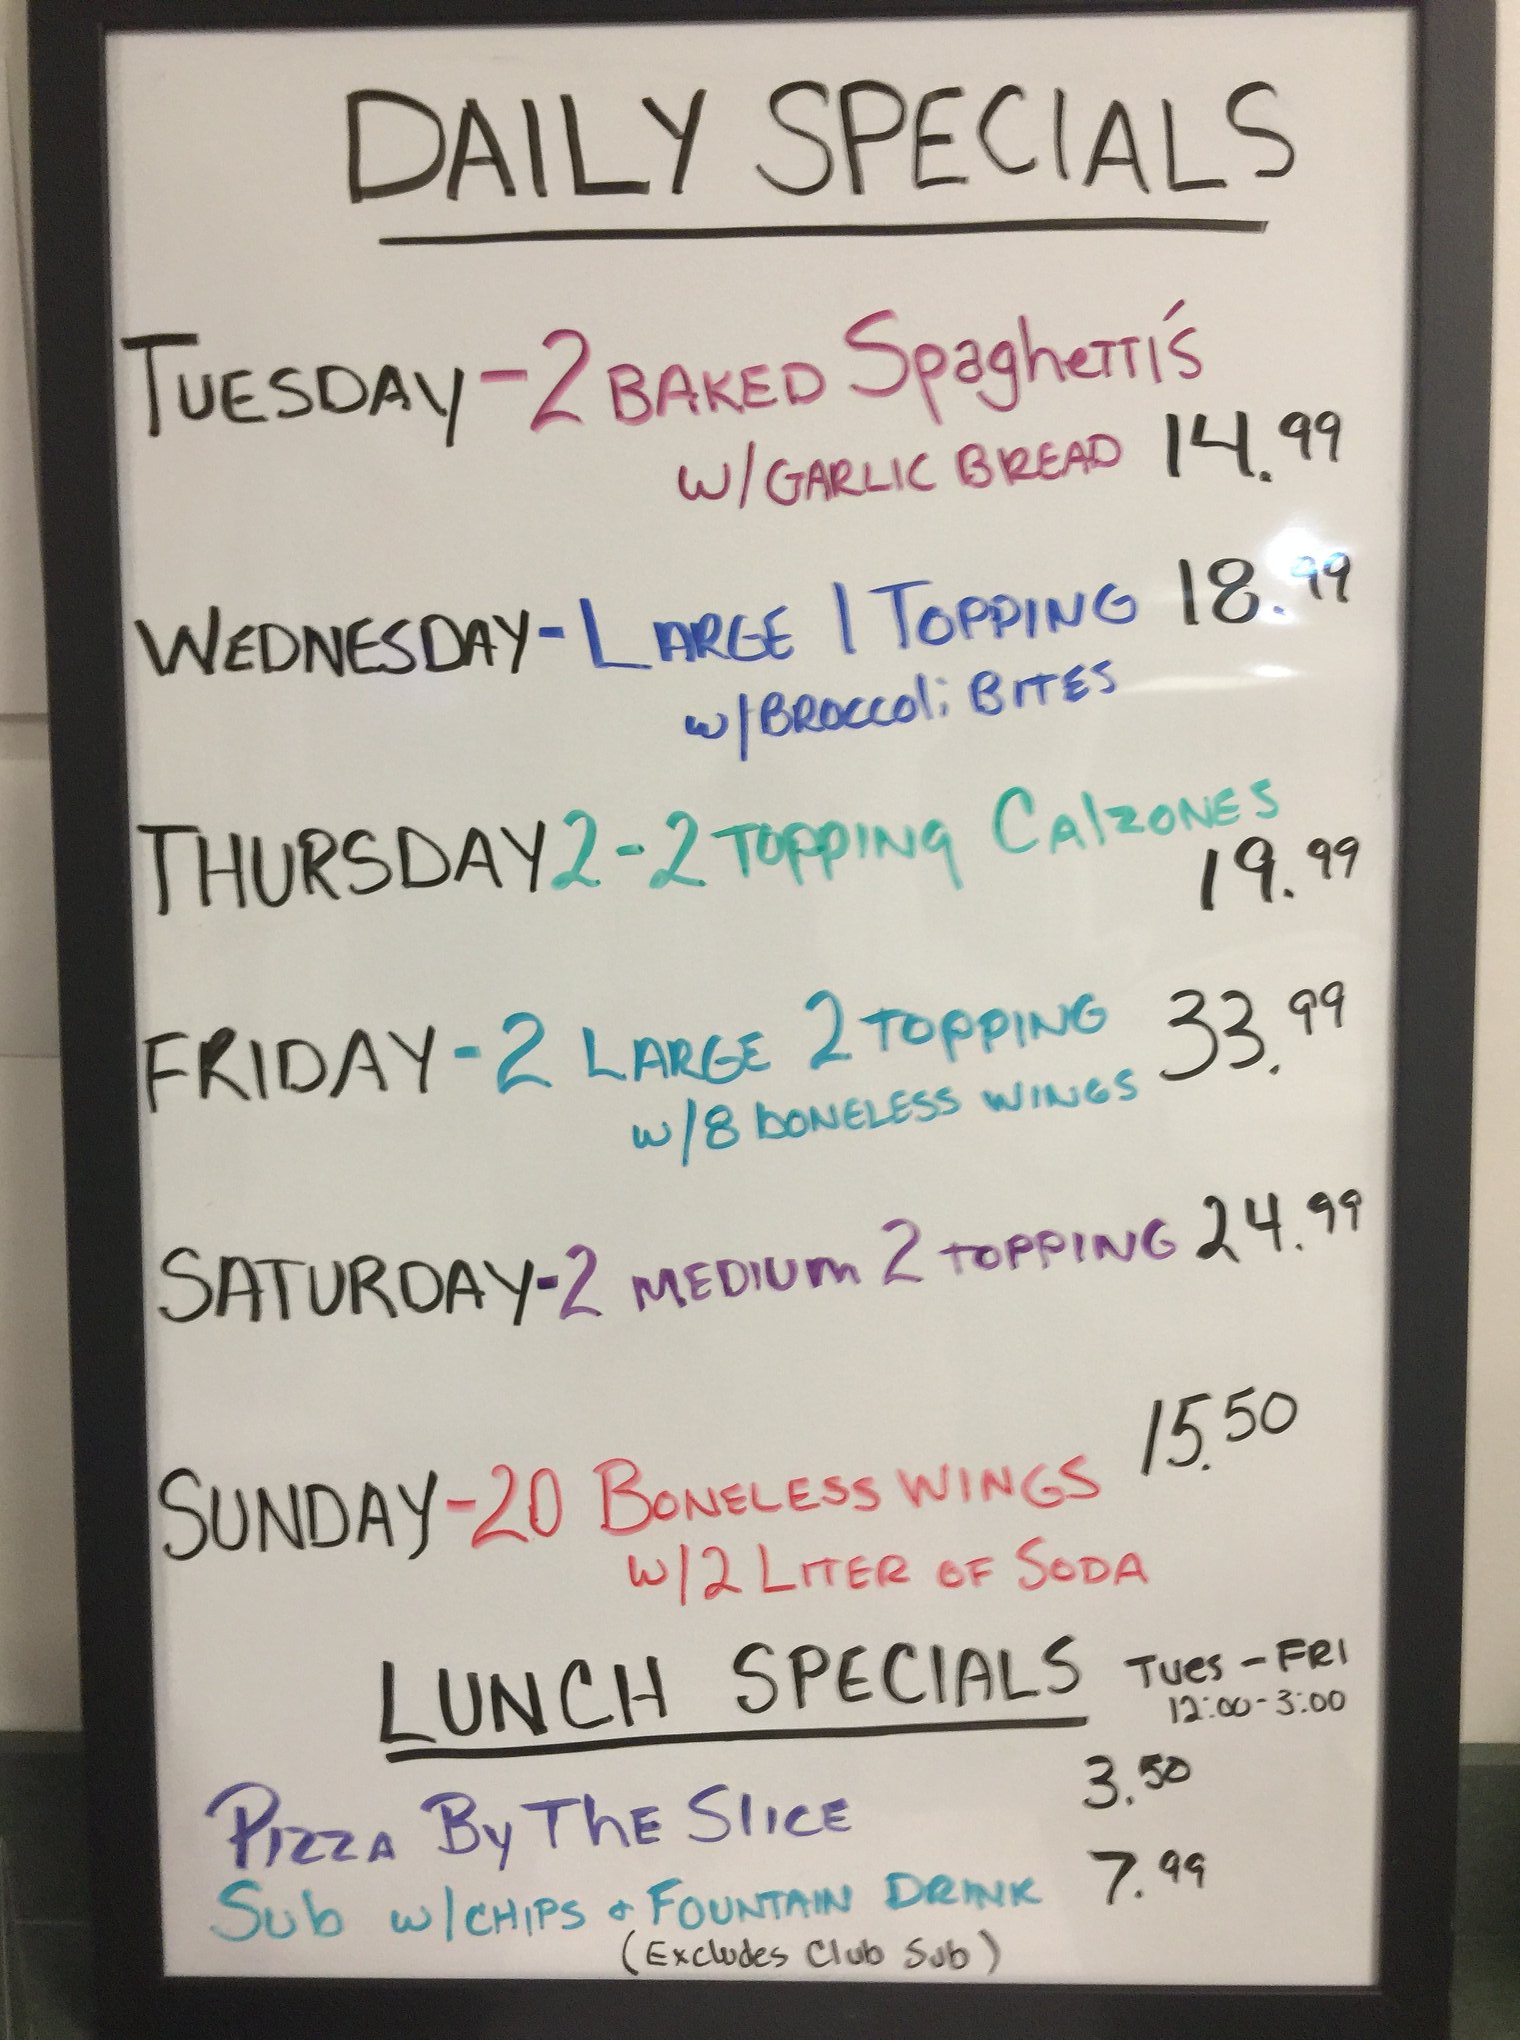 DAILY SPECIALS
TUESDAY - 2 BAKED Spaghetti's
w/GARLIC BREAD 14.99
WEDNESDAY - LARGE 1 TOPPING 18.99
w/BROCCOLi BITES
THURSDAY 2 - 2 TOPPING CAlZONES
19.99
FRIDAY - 2 LARGE 2 TOPPING 33.99
w/8 BONELESS WINGS
SATURDAY - 2 MEDIUM 2 TOPPING 24.99
SUNDAY - 20 BONELESS WINGS 15.50
w/2 LITER OF SODA
LUNCH SPECIALS TUES - FRI
12:00-3:00
PIZZA By ThE SlICE 3.50
Sub w/CHIPS & FOUNTAIN DRINK 7.99
(Excludes Club Sub)